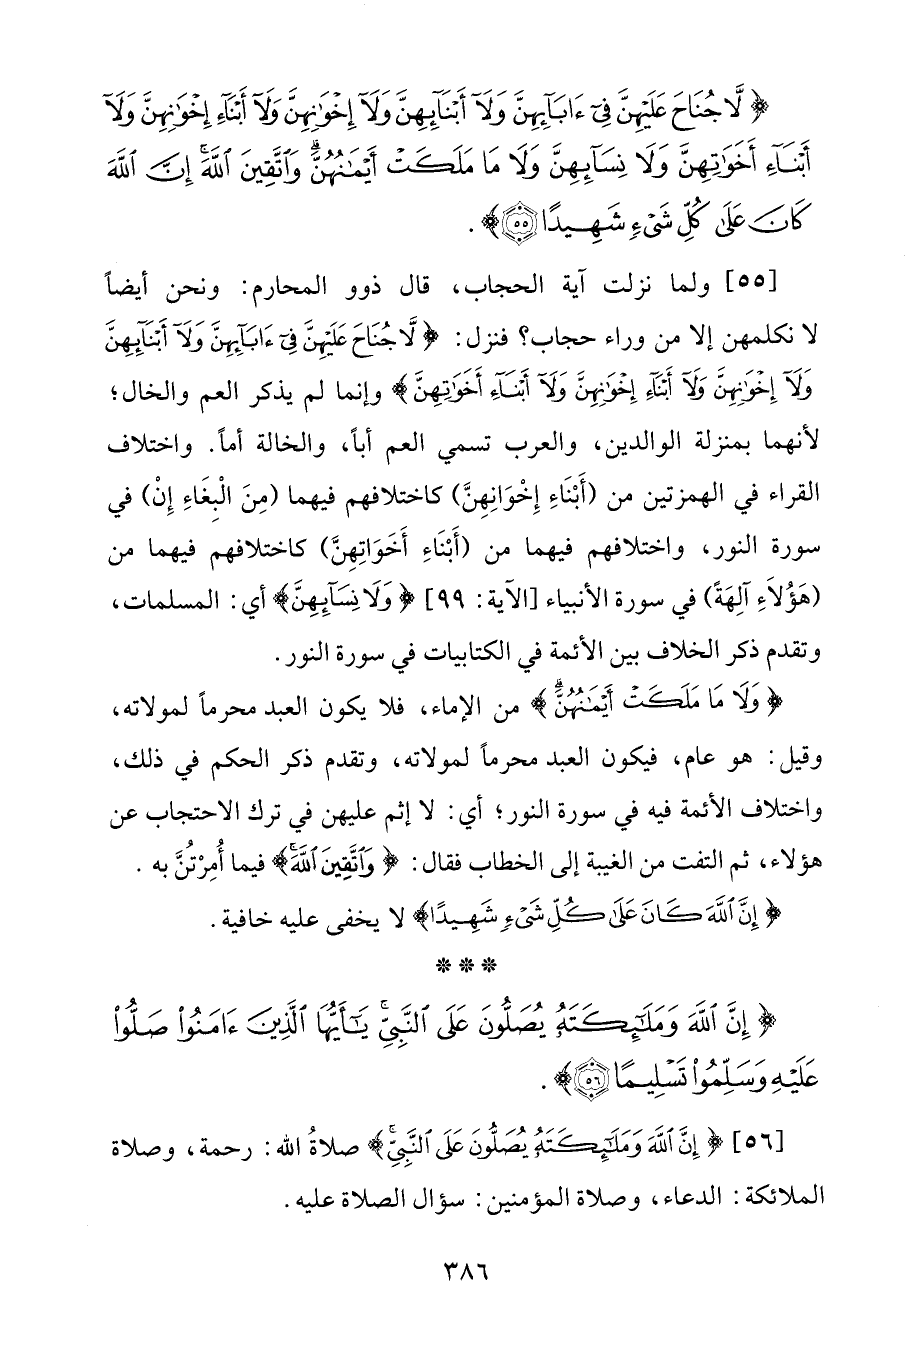 ﴿ لَّا جُنَاحَ عَلَيْهِنَّ فِىٓ ءَابَآئِهِنَّ وَلَآ أَبْنَآئِهِنَّ وَلَآ إِخْوَٰنِهِنَّ وَلَآ أَبْنَآءِ إِخْوَٰنِهِنَّ وَلَآ
أَبْنَآءِ أَخَوَٰتِهِنَّ وَلَا نِسَآئِهِنَّ وَلَا مَا مَلَكَتْ أَيْمَٰنُهُنَّۗ وَٱتَّقِينَ ٱللَّهَۚ إِنَّ ٱللَّهَ
كَانَ عَلَىٰ كُلِّ شَىْءٍ شَهِيدًا ٥٥ ﴾ .
[٥٥] ولما نزلت آية الحجاب، قال ذوو المحارم: ونحن أيضاً
لا نكلمهن إلا من وراء حجاب؟ فنزل: ﴿ لَّا جُنَاحَ عَلَيْهِنَّ فِىٓ ءَابَآئِهِنَّ وَلَآ أَبْنَآئِهِنَّ
وَلَآ إِخْوَٰنِهِنَّ وَلَآ أَبْنَآءِ إِخْوَٰنِهِنَّ وَلَآ أَبْنَآءِ أَخَوَٰتِهِنَّ ﴾ وإنما لم يذكر العم والخال؛
لأنهما بمنزلة الوالدين، والعرب تسمي العم أباً، والخالة أماً. واختلاف
القراء في الهمزتين من (أَبْنَاءِ إِخْوَانِهِنَّ) كاختلافهم فيهما (مِنَ الْبِغَاءِ إِنْ) في
سورة النور، واختلافهم فيهما من (أَبْنَاءِ أَخَوَاتِهِنَّ) كاختلافهم فيهما من
(هَؤُلَاءِ آلِهَةً) في سورة الأنبياء [الآية: ٩٩] ﴿ وَلَا نِسَآئِهِنَّ ﴾ أي: المسلمات،
وتقدم ذكر الخلاف بين الأئمة في الكتابيات في سورة النور.
﴿ وَلَا مَا مَلَكَتْ أَيْمَٰنُهُنَّۗ ﴾ من الإماء، فلا يكون العبد محرماً لمولاته،
وقيل: هو عام، فيكون العبد محرماً لمولاته، وتقدم ذكر الحكم في ذلك،
واختلاف الأئمة فيه في سورة النور؛ أي: لا إثم عليهن في ترك الاحتجاب عن
هؤلاء، ثم التفت من الغيبة إلى الخطاب فقال: ﴿ وَٱتَّقِينَ ٱللَّهَۚ ﴾ فيما أُمِرْتُنَّ به .
﴿ إِنَّ ٱللَّهَ كَانَ عَلَىٰ كُلِّ شَىْءٍ شَهِيدًا ﴾ لا يخفى عليه خافية.
* * *
﴿ إِنَّ ٱللَّهَ وَمَلَٰٓئِكَتَهُۥ يُصَلُّونَ عَلَى ٱلنَّبِىِّۚ يَٰٓأَيُّهَا ٱلَّذِينَ ءَامَنُوا۟ صَلُّوا۟
عَلَيْهِ وَسَلِّمُوا۟ تَسْلِيمًا ٥٦ ﴾ .
[٥٦] ﴿ إِنَّ ٱللَّهَ وَمَلَٰٓئِكَتَهُۥ يُصَلُّونَ عَلَى ٱلنَّبِىِّۚ ﴾ صلاةُ الله: رحمة، وصلاة
الملائكة: الدعاء، وصلاة المؤمنين: سؤال الصلاة عليه.
٣٨٦